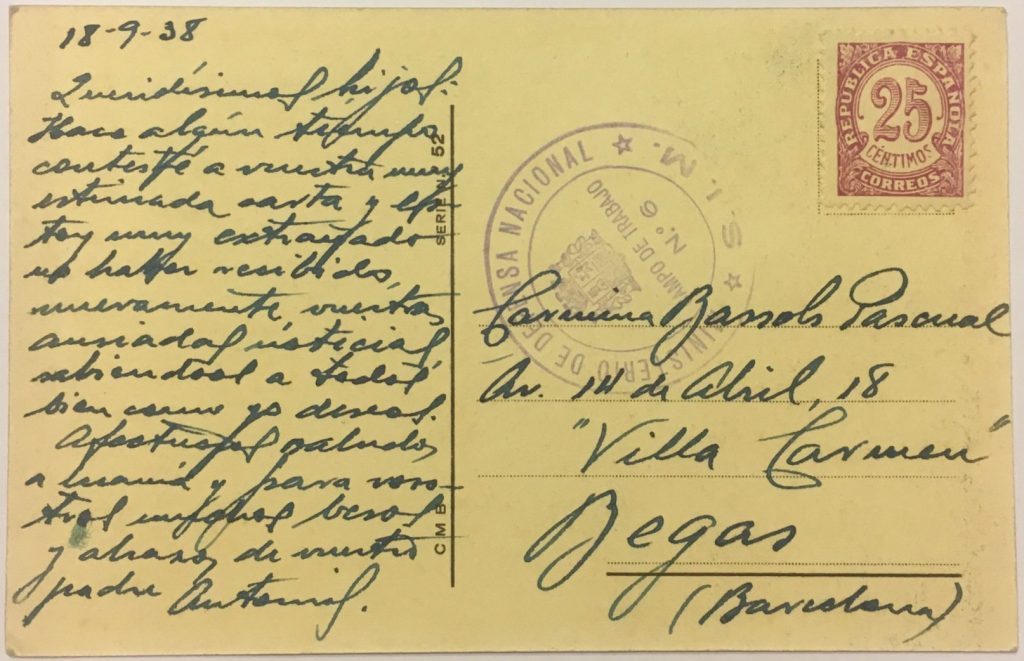 18-9-38
Queridísimos hijos:
Hace algún tiempo
contesté a vuestra muy
estimada carta y es-
toy muy extrañado
no haber recibido,
nuevamente, vuestras
ansiadas noticias,
sabiendoos a todos
bien como yo deseo.
Afectuosos saludos
a mamá y para voso-
tros muchos besos
y abrazos de vuestro
padre Antonio.
C M B
SERIE 52
REPUBLICA ESPAÑOLA
25
CÉNTIMOS
CORREOS
MINISTERIO DE DEFENSA NACIONAL
S. I. M.
CAMPO DE TRABAJO
N.º 6
Carmina Bassols Pascual
Av. 14 de Abril, 18
"Villa Carmen"
Begas
(Barcelona)